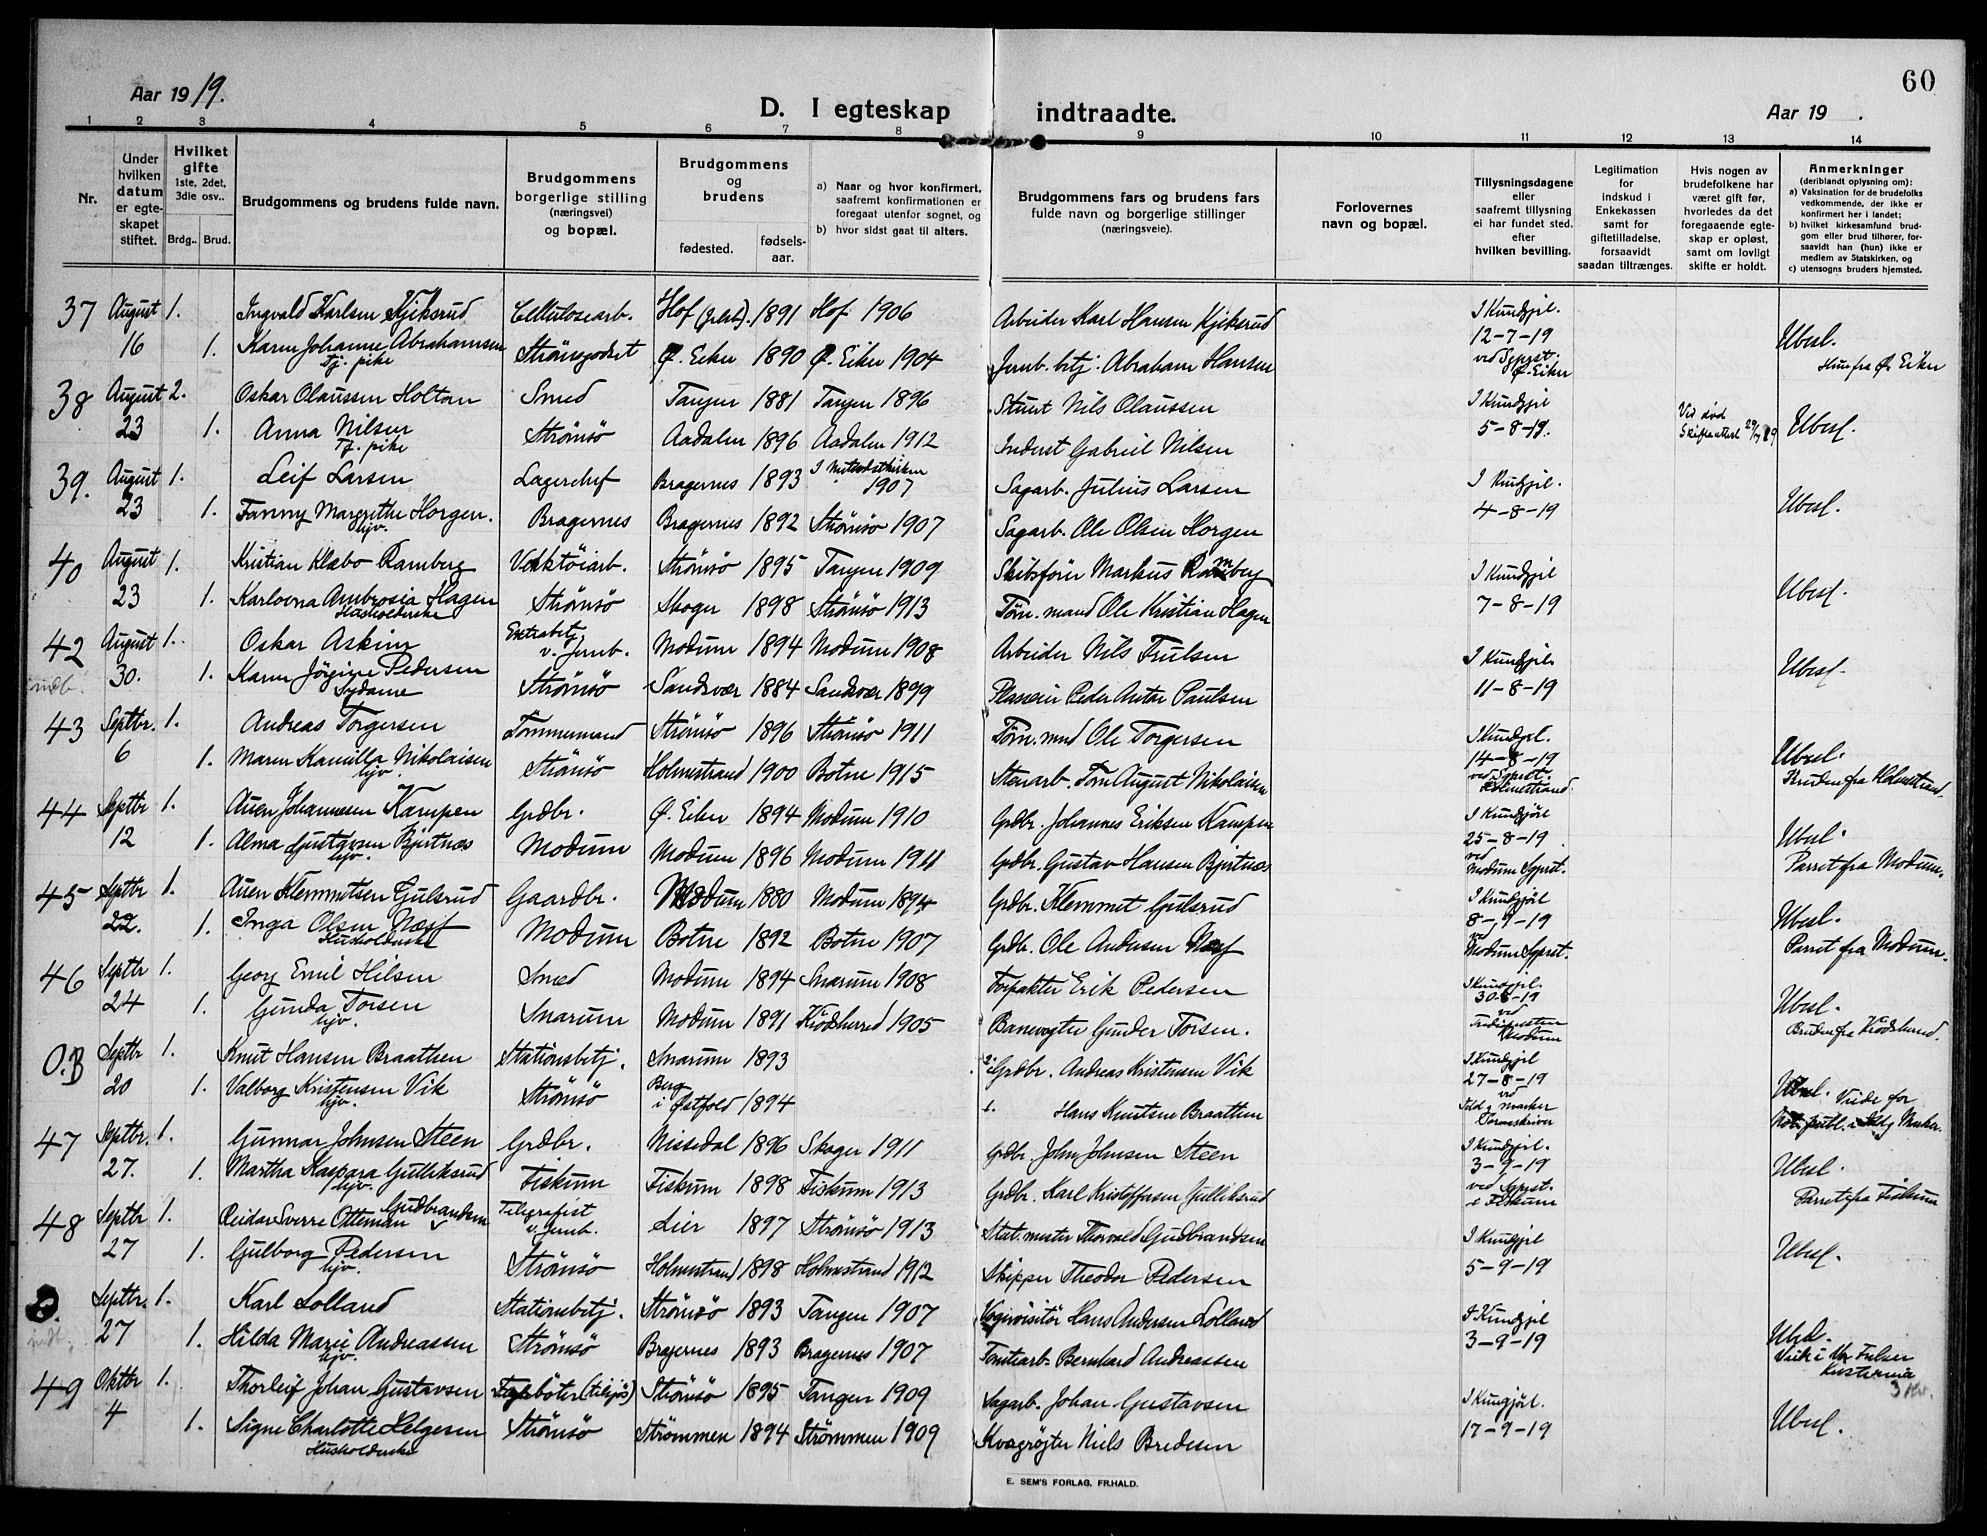 60
Aar 1919.
D. I egteskap indtraadte.
Aar 19 .
1 2 3 4 5 6 7 8 9 10 11 12 13 14
Nr.
Under hvilken datum er egteskapet stiftet.
Hvilket gifte 1ste, 2det, 3die osv..
Brdg.. Brud.
Brudgommens og brudens fulde navn.
Brudgommens borgerlige stilling (næringsvei) og bopæl.
Brudgommens og brudens
fødested. fødsels-aar.
a) Naar og hvor konfirmert, saafremt konfirmationen er foregaat utenfor sognet, og
b) hvor sidst gaat til alters.
Brudgommens fars og brudens fars fulde navn og borgerlige stillinger (næringsveie).
Forlovernes navn og bopæl.
Tillysningsdagene eller saafremt tillysning ei har fundet sted. efter hvilken bevilling.
Legitimation for indskud i Enkekassen samt for giftetilladelse, forsaavidt saadan tiltrænges.
Hvis nogen av brudefolkene har været gift før, hvorledes da det foregaaende egteskap er opløst, samt om lovligt skifte er holdt.
Anmerkninger (deriblandt oplysning om):
a) Vaksination for de brudefolks vedkommende, der ikke er konfirmert her i landet;
b) hvilket kirkesamfund brudgom eller brud tilhører, forsaavidt han (hun) ikke er medlem av Statskirken, og
c) utensogns bruders hjemsted.
37 August 1. Ingvald Karlsen Kjiksrud Cellulosearb. Hof (Jrlsb). 1891 Hof 1906 Arbeider Karl Hansen Kjiksrud I Kundgjl.
16 1. Karen Johanne Abrahamsen Strömsgodset Ø. Eiker 1890 Ø. Eiker 1904 Jernb. btj. Abraham Hansen 12-7-19 Ubesl.
Tj. pike ved Sgprst. Ø. Eiker Hun fra Ø. Eiker
38 August 2. Oskar Olaussen Holtan Smed Tangen 1881 Tangen 1896 Stuert Nils Olaussen I Kundgjl Ved död
23 1. Anna Nilsen Strömsö Aadalen 1896 Aadalen 1912 Inderst Gabriel Nilsen 5-8-19. Ubesl.
Tj. pike
39. August 1. Leif Larsen Lagerchef Bragernes 1893 I Metodistkirken 1907 Sagarb. Julius Larsen I Kundgjl.
23 1. Fanny Margrethe Horgen. Bragernes Bragernes 1892 Strömsö 1907 Sagarb. Ole Olsen Horgen 4-8-19 Ubesl.
hjv.
40 August 1. Kristian Klæbo Ramberg Verktöiarb. Strömsö 1895 Tangen 1909 Skibsförer Markus Ramberg I Kundgjl
23 1. Karlovna Ambrosia Hagen Strömsö Skoger 1898 Strömsö 1913 Töm. mand Ole Kristian Hagen 7-8-19 Ubesl.
Husholderske
42 August 1. Oskar Askim Extrabetj. v. Jernb. Modum 1894 Modum 1908 Arbeider Nils Trulsen I Kundgjl.
indb. 30. 1. Karen Jörgine Pedersen Strömsö Sandsvær 1884 Sandsvær 1899 Plasseier Peder Anton Paulsen 11-8-19 Ubesl.
Sydame
43 Septbr. 1. Andreas Torgersen Tömmermand Strömsö 1896 Strömsö 1911 Töm. mnd Ole Torgersen I Kundgjl.
6 1. Maren Kamilla Nikolaisen Strömsö Holmestrand 1900 Botne 1915 Stenarb. Tom August Nikolaisen 14-8-19 Ubesl.
hjv. ved Sgprst. Holmestrand. Bruden fra Holmestrand.
44 Septbr 1. Auen Johannesen Kampen Grdbr. Ø. Eiker 1894 Modum 1910 Grdbr. Johannes Eriksen Kampen I Kundgjöl
12 1. Alma Gustavsen Bjertnæs Modum Modum 1896 Modum 1911 Grdbr. Gustav Hansen Bjertnæs 25-8-19 Ubesl.
hjv. ved Modum Sgprst. Parret fra Modum.
45 Septbr 1. Auen Klemmetsen Gulsrud Gaardbr. Modum 1880 Modum 1894 Grdbr. Klemmet Gulsrud I Kundgjöl
22. 1. Inga Olsen Næss Modum Botne 1892 Botne 1907 Grdbr. Ole Andersen Næss 8-9-19 Ubesl.
Husholderske ved Modum Sgprst. Parret fra Modum.
46 Septbr 1. Georg Emil Hilsen Smed Modum 1894 Snarum 1908 Forpakter Erik Pedersen I Kundgjl.
24 1. Gunda Torsen Snarum Modum 1891 Krödsherred 1905 Banevogter Gunder Torsen. 30-8-19 Ubesl.
hjv. ved Modum Bruden fra Krödsherred.
O.B Septbr 1. Knut Hansen Braathen Stationsbetj. Snarum 1893 2. Grdbr. Andreas Kristensen Vik I Kundgjl
20 1. Valborg Kristensen Vik Strömsö Berg i Østfold 1894 1. Hans Knutsen Braathen 27-8-19 Ubesl. Viede for
hjv. ved Idd og Marker Sorenskriver Not. publ. i Idd og Marker.
47 Septbr. 1. Gunnar Johnsen Steen Grdbr. Nissedal 1896 Skoger 1911 Grdbr. John Johnsen Steen I Kundgjl.
27. 1. Martha Kaspara Gulliksrud Fiskum Fiskum 1898 Fiskum 1913 Grdbr. Karl Kristoffersen Gulliksrud 3-9-19 Ubesl.
hjv. ved Sgprst. i Fiskum Parret fra Fiskum
48 Septbr 1. Reidar Sverre Otteman Gudbrandsen Telegrafist v. Jernb. Lier 1897 Strömsö 1913 Stat. mester Thorvald Gudbrandsen I Kundgjl
27 1. Gulborg Pedersen Strömsö Holmestrand 1898 Holmestrand 1912 Skipper Theodor Pedersen 5-9-19 Ubesl.
hjv.
Septbr. 1. Karl Lolland Stationsbetj. Strömsö 1893 Tangen 1907 Vognvisitör Hans Andersen Lolland I Kundgjl
27 1. Hilda Marie Andreassen Strömsö Bragernes 1893 Bragernes 1907 Tomtearb. Bernhard Andreassen 3-9-19 Ubesl.
hjv. Viet i Vor Frelser Kristiania
49 Oktbr 1. Thorleif Johan Gustavsen Strömsö 1895 Tangen 1909 Sagarb. Johan Gustavsen I Kungjöl.
4 1. Signe Charlotte Helgesen Strömsö Strömmen 1894 Strömmen 1909 Kvægrögter Niels Bredesen 17-9-19 Ubesl.
Husholderske
E. SEM'S FORLAG, FR.HALD.